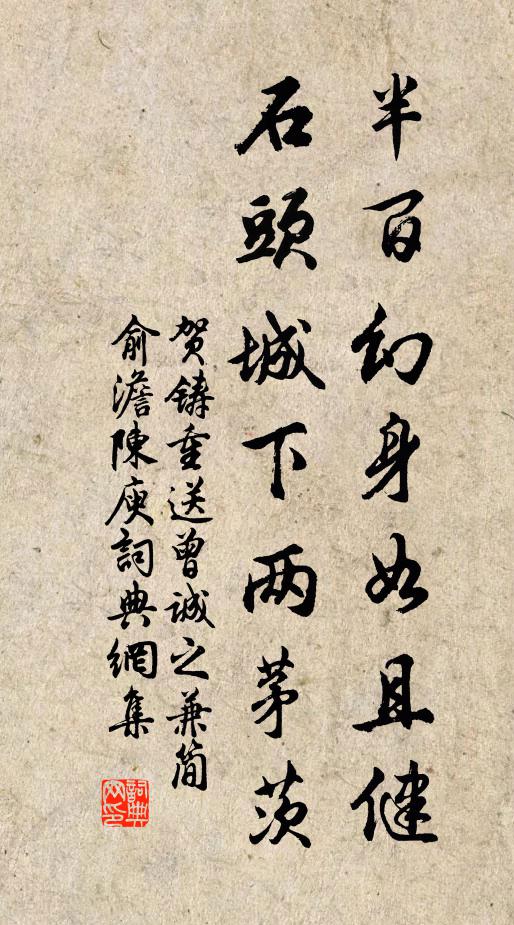 半百幻身如且健
石頭城下两茅茨
贺鑄重送曾誠之兼简
俞澹陳庾詞典網集
詞典网印